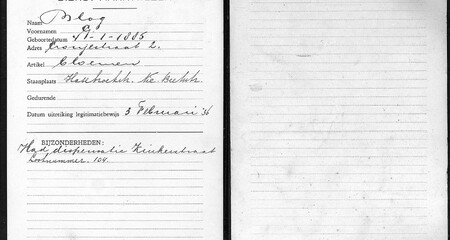 Naam Blog
Voornamen G.
Geboortedatum 11-1-1885
Adres Cronjéstraat 2.
Artikel Bloemen
Staanplaats
Gedurende
Datum uitreiking legitimatiebewijs 3 Februari '36
BIJZONDERHEDEN:
Had dispensatie Zinkerstraat
Lootnummer. 104.